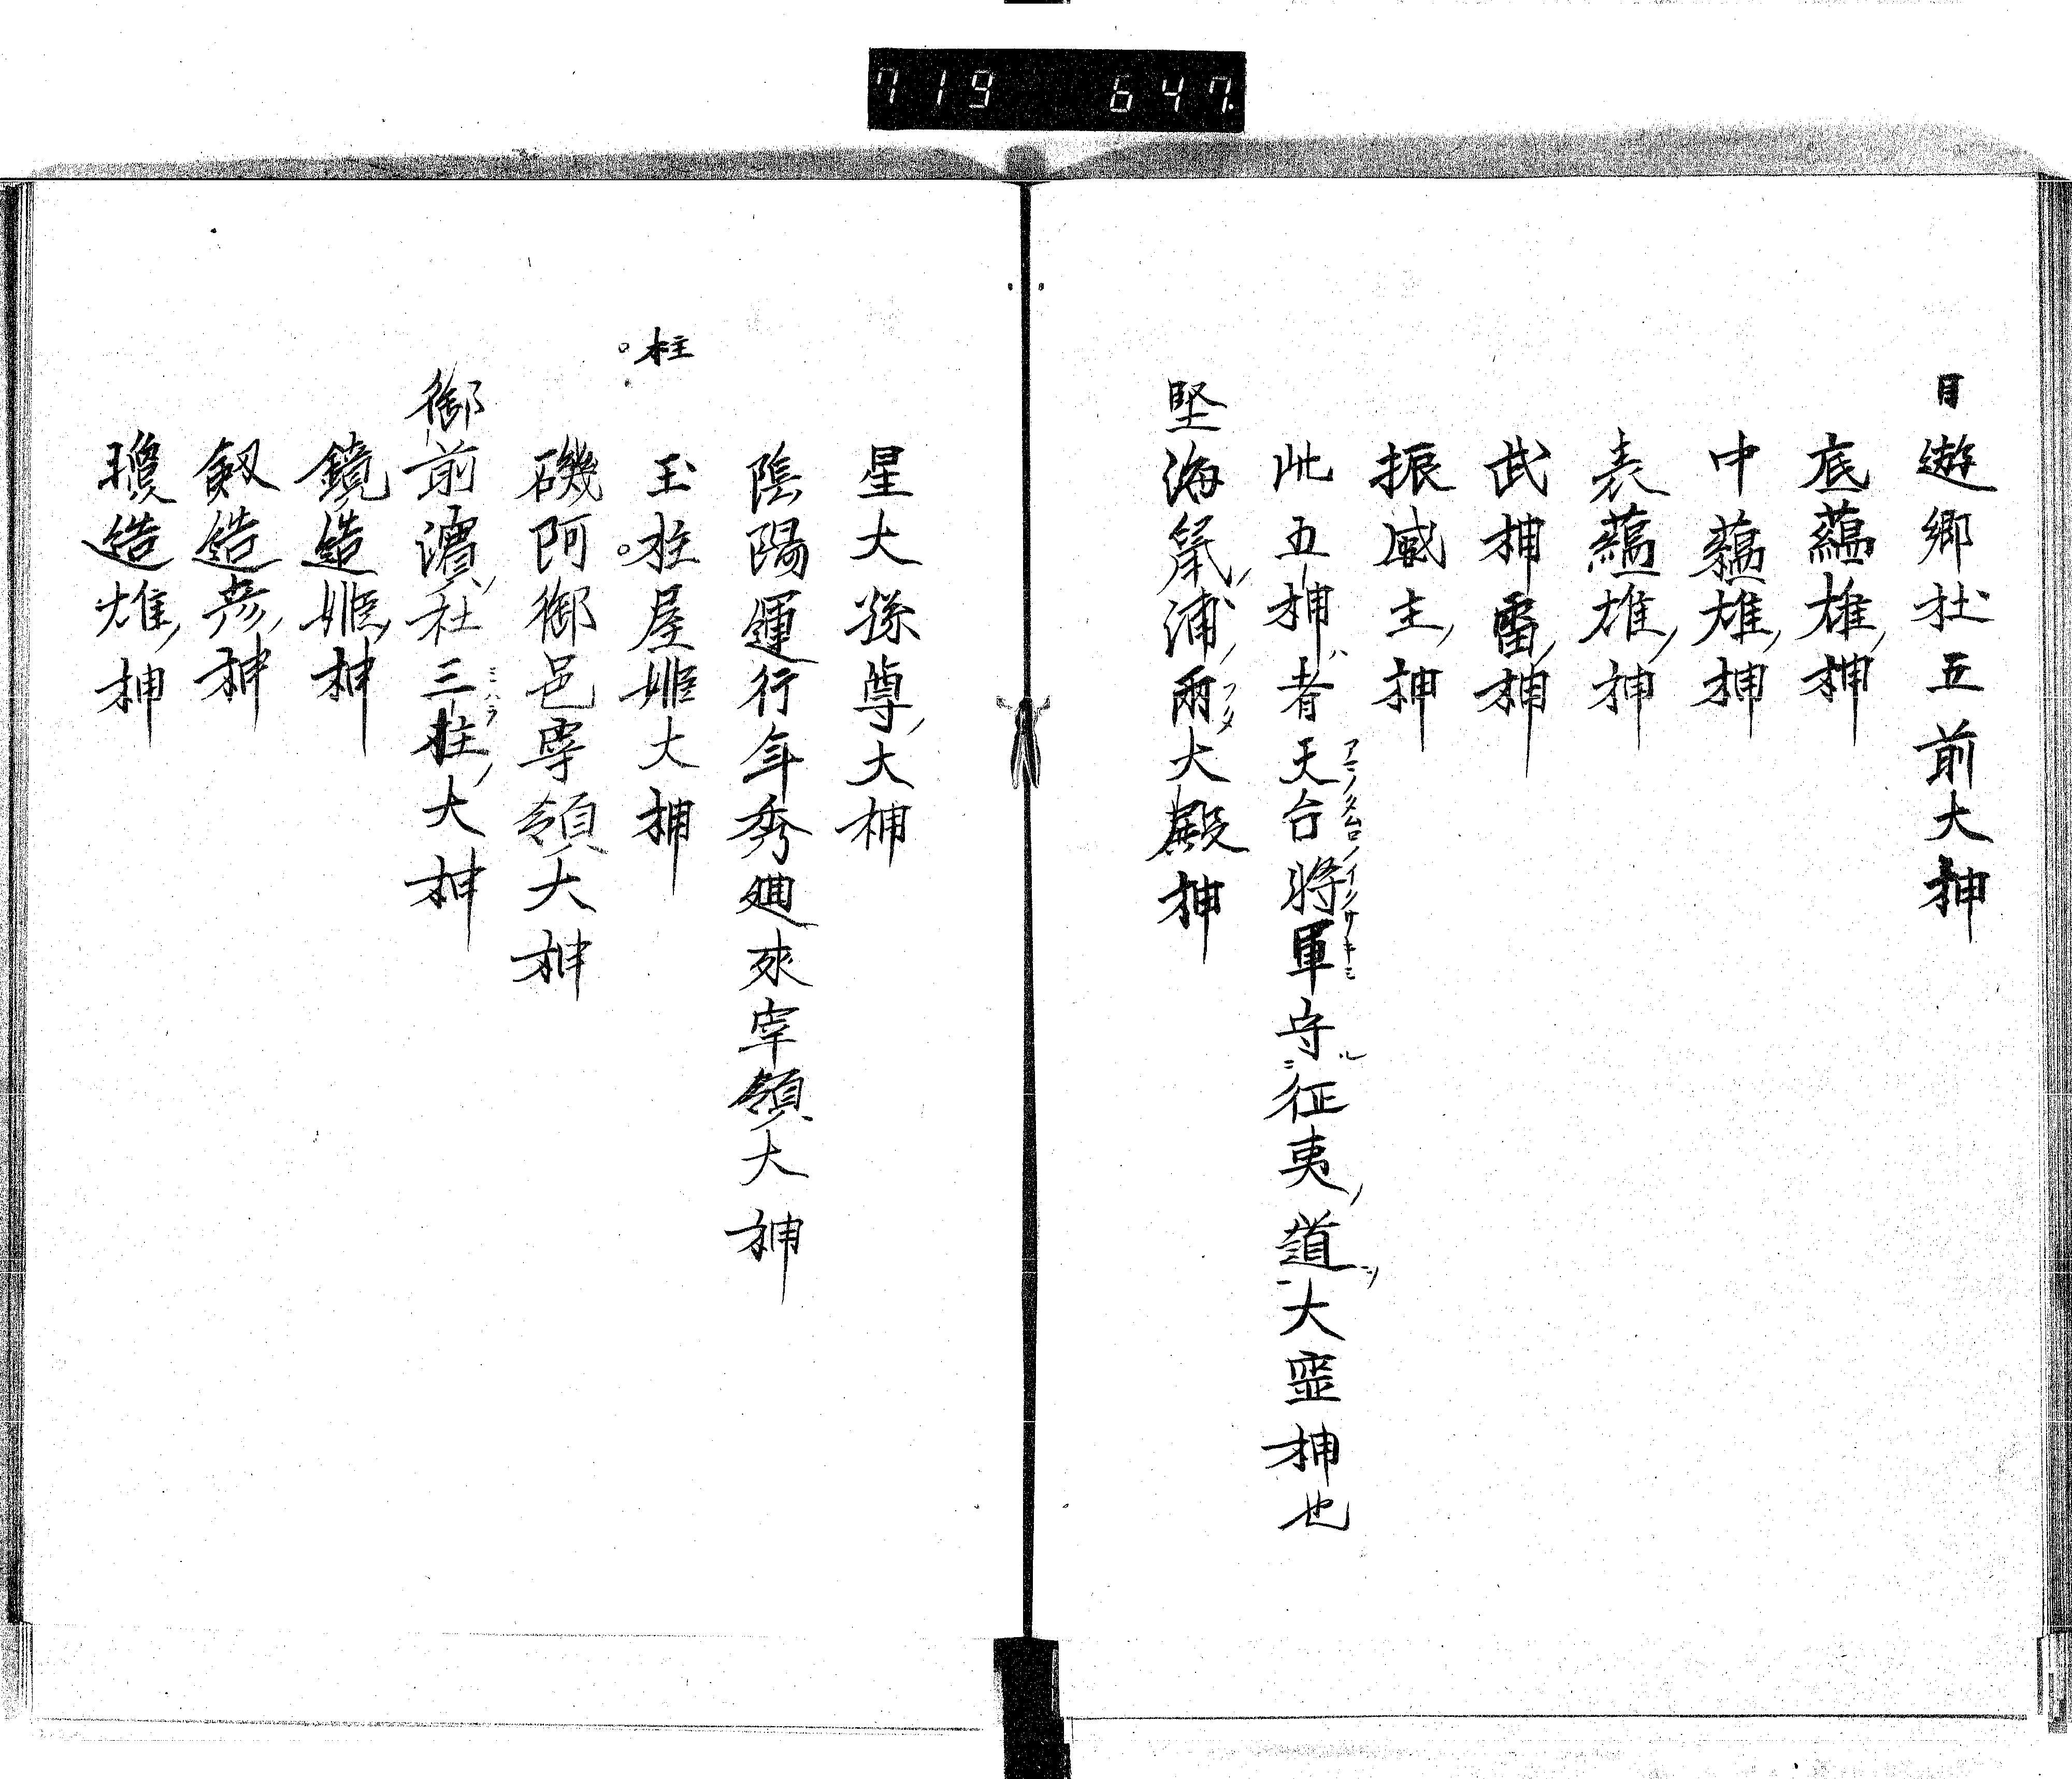 719 647.
目遊郷社五前大神
底蘊雄ノ神
中蘊雄ノ神
表蘊雄ノ神
武神雷ノ神
振威主ノ神
此五神ハ者天台将軍守ル征夷ノ道ヲ大霊神也
アマノタムロノイクサキミ
堅海ノ浦ノ両大殿神
フタ
星大孫尊ノ大神
陰陽運行年秀廻來宰領大神
柱
玉柱屋姫大神
磯阿御邑宰領大神
御前濱ノ社三柱ノ大神
ミハシラ
鏡造姫ノ神
釼造彦ノ神
瓊造雄ノ神